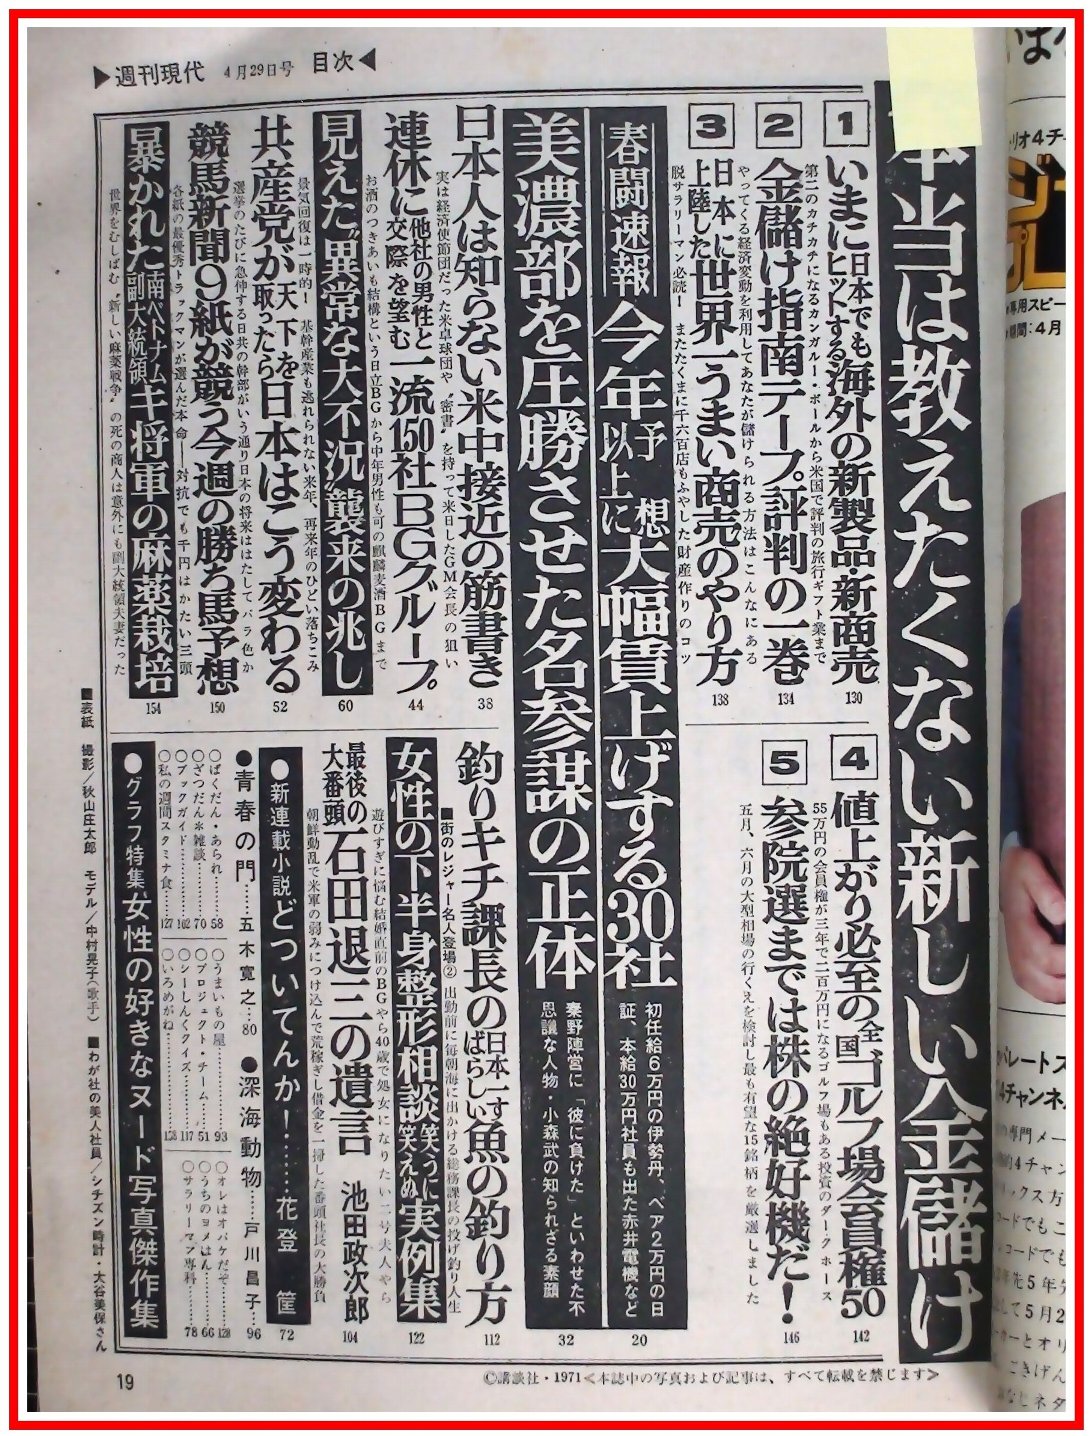 ▶週刊現代 4月29日号 目次◀
本当は教えたくない新しい金儲け
1
いまに日本でもヒットする海外の新製品・新商売
第二のカチカチになるカンガルー・ボールから米国で評判の旅行ギフト業まで
130
2
金儲け指南テープ評判の一巻
やってくる経済変動を利用してあなたが儲けられる方法はこんなにある
134
3
日本に上陸した世界一うまい商売のやり方
脱サラリーマン必読! またたくまに千六百店もふやした財産作りのコツ
138
4
値上がり必至の全国ゴルフ場会員権50
55万円の会員権が三年で二百万円になるゴルフ場もある投資のダーク・ホース
142
5
参院選までは株の絶好機だ!
五月、六月の大型相場の行くえを検討し最も有望な15銘柄を厳選しました
146
春闘速報
今年予想以上に大幅賃上げする30社
初任給6万円の伊勢丹、ベア2万円の日
証、本給30万円社員も出た赤井電機など
20
美濃部を圧勝させた名参謀の正体
秦野陣営に「彼に負けた」といわせた不
思議な人物・小森武の知られざる素顔
32
日本人は知らない米中接近の筋書き
実は経済使節団だった米卓球団や〝密書〟を持って米日したGM会長の狙い
38
連休に他社の男性と交際を望む一流150社BGグループ
お酒のつきあいも結構という日立BGから中年男性も可の麒麟麦酒BGまで
44
見えた〝異常な大不況〟襲来の兆し
景気回復は一時的! 基幹産業も逃れられない来年、再来年のひどい落ちこみ
60
共産党が天下を取ったら日本はこう変わる
選挙のたびに急伸する日共の幹部がいう通り日本の将来ははたしてバラ色か
52
競馬新聞9紙が競う今週の勝ち馬予想
各紙の最優秀トラックマンが選んだ本命――対抗でも千円はかたい三頭
150
暴かれた南ベトナム副大統領キ将軍の麻薬栽培
世界をむしばむ〝新しい麻薬戦争〟の死の商人は意外にも副大統領夫妻だった
154
釣りキチ課長の日本一すばらしい魚の釣り方
■街のレジャー名人登場② 出勤前に毎朝海に出かける総務課長の投げ釣り人生
112
女性の下半身整形相談笑うに笑えぬ実例集
遊びすぎに悩む結婚直前のBGやら40歳で処女になりたい二号夫人やら
122
最後の大番頭石田退三の遺言 池田政次郎
朝鮮動乱で米軍の弱みにつけ込んで荒稼ぎし借金を一掃した番頭社長の大勝負
104
●新連載小説どついてんか!……花登 筐
72
●青春の門……五木寛之…80 ●深海動物……戸川昌子…96
○ばくだん・あられ……58
○ざつだん※雑談……70
○ブックガイド……102
○私の週間スタミナ食……127
○うまいもの屋……93
○プロジェクト・チーム……51
○シーしんくクイズ……117
○いろめがね……128
○オレはオバケだぞ……128
○うちのヨメはん……66
○サラリーマン専科……78
●グラフ特集女性の好きなヌード写真傑作集
■表紙 撮影/秋山庄太郎 モデル/中村晃子(歌手) ■わが社の美人社員/シチズン時計・大谷美保さん
19
©講談社・1971≪本誌中の写真および記事は、すべて転載を禁じます≫
リオ4チャ
専用スピー
期間:4月
パレートス
4チャンネ
専門メー
4チャン
ックス方
コードでもこ
コードでも